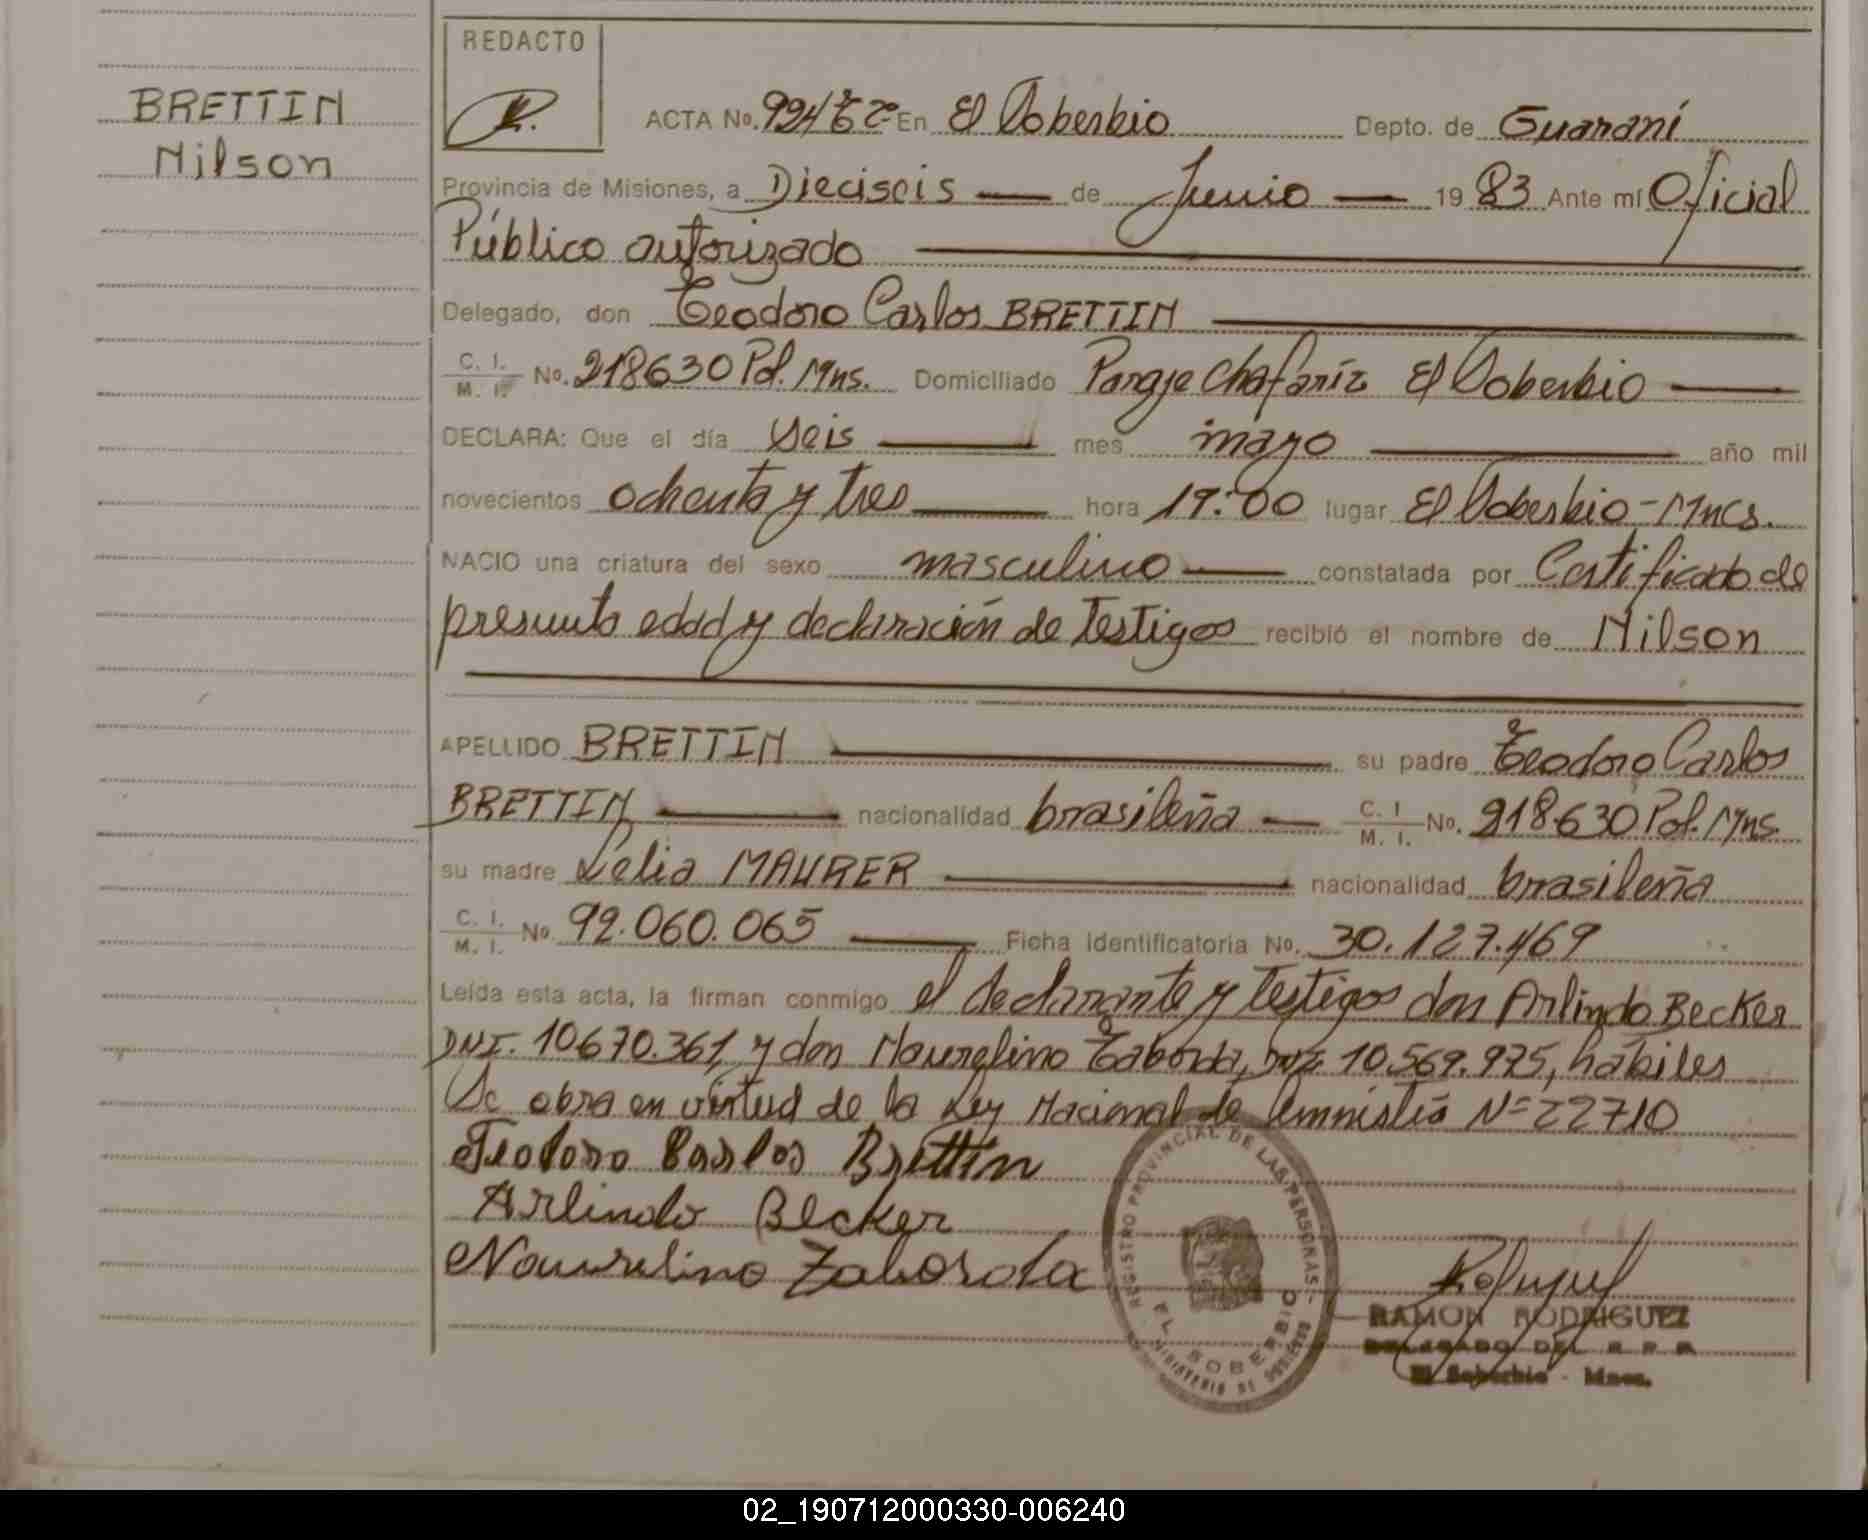 REDACTO
BRETTIN
Nilson
ACTA No. 924 En El Soberbio Depto. de Guaraní
Provincia de Misiones, a Dieciseis de Junio 1983 Ante mí Oficial
Público autorizado
Delegado, don Teodoro Carlos BRETTIN
C. I. M. I. No. 218630 Pol. Mns. Domiciliado Paraje Chafariz El Soberbio
DECLARA: Que el día seis mes mayo año mil
novecientos ochenta y tres hora 17:00 lugar El Soberbio - Mnes.
NACIO una criatura del sexo masculino constatada por Certificado de
presunta edad y declaración de Testigos recibió el nombre de Nilson
APELLIDO BRETTIN su padre Teodoro Carlos
BRETTIN nacionalidad brasileña C. I. M. I. No. 218.630 Pol. Mns.
su madre Lelia MAURER nacionalidad brasileña
C. I. M. I. No. 92.060.065 Ficha identificatoria No. 30.127.469
Leída esta acta, la firman conmigo el declarante y Testigos don Arlindo Becker
DNI. 10670.361, y don Naurelino Taborda, DNI 10.569.975, hábiles
Se obra en virtud de la Ley Nacional de Amnistía Nº 22710
Teodoro Carlos Brettin
Arlindo Becker
Naurelino Taborda
REGISTRO PROVINCIAL DE LAS PERSONAS - MINISTERIO DE GOBIERNO
EL SOBERBIO
RAMON RODRIGUEZ
DELEGADO DEL R P P
El Soberbio - Mnes.
02_190712000330-006240